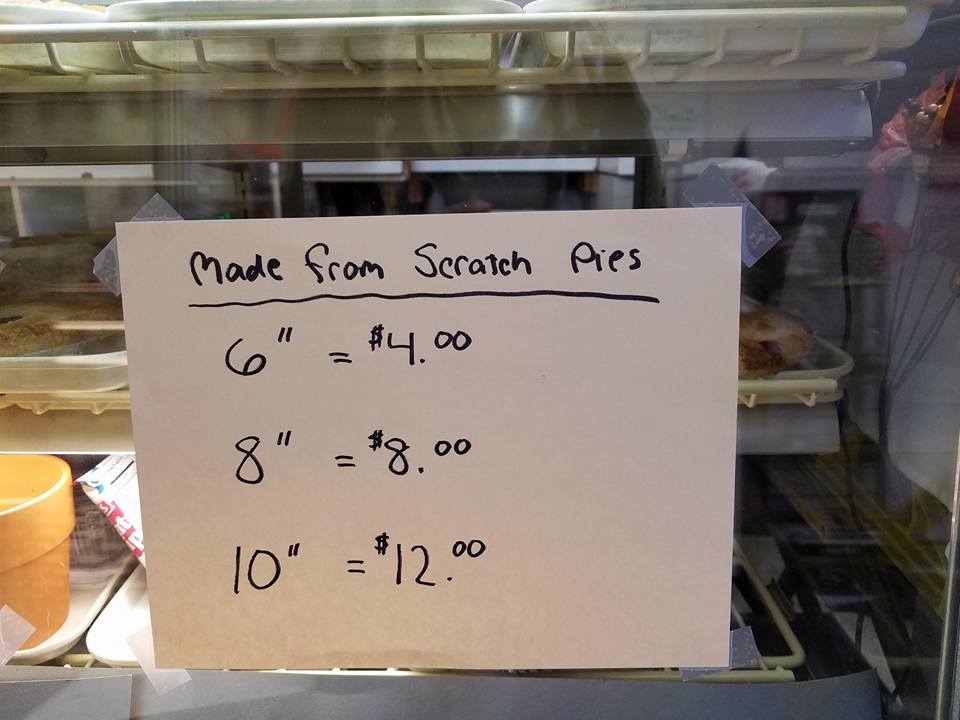 Made from Scratch Pies
6" = $4.00
8" = $8.00
10" = $12.00